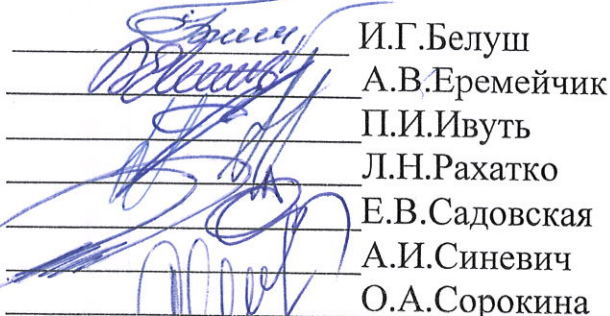 И.Г.Белуш
А.В.Еремейчик
П.И.Ивуть
Л.Н.Рахатко
Е.В.Садовская
А.И.Синевич
О.А.Сорокина